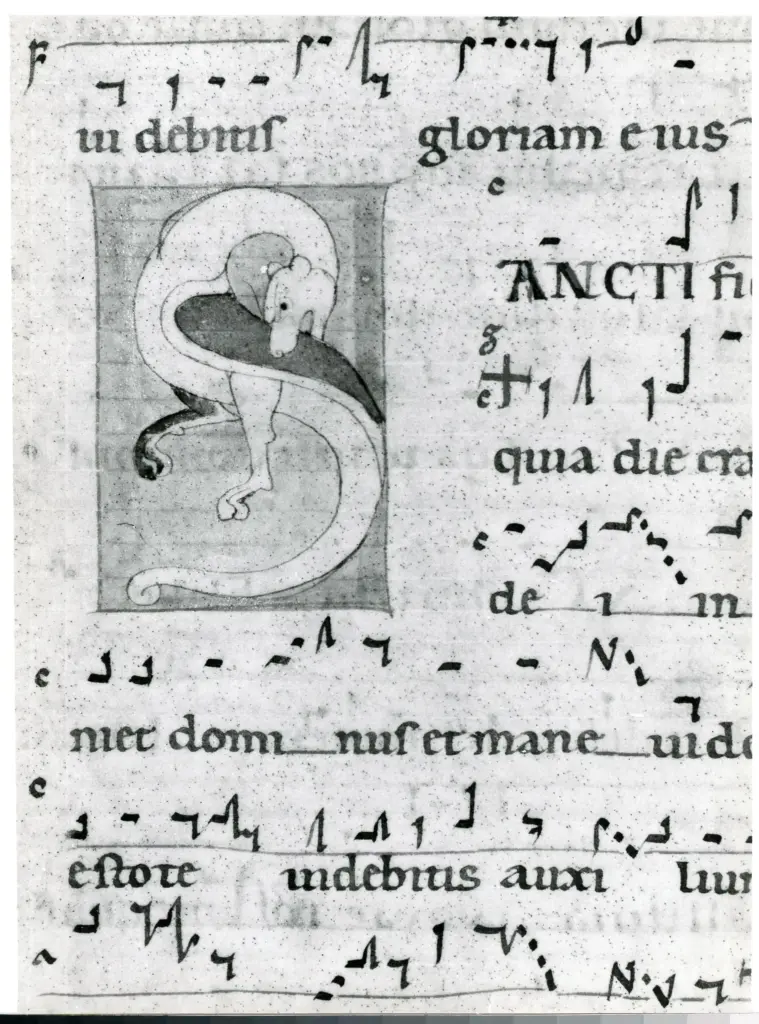 F
uidebitis gloriam eius
c
SANCTIfi
g
c
quia die cra
c
de i in
c
niet domi nus et mane uide
c
estote uidebitis auxi liu
a